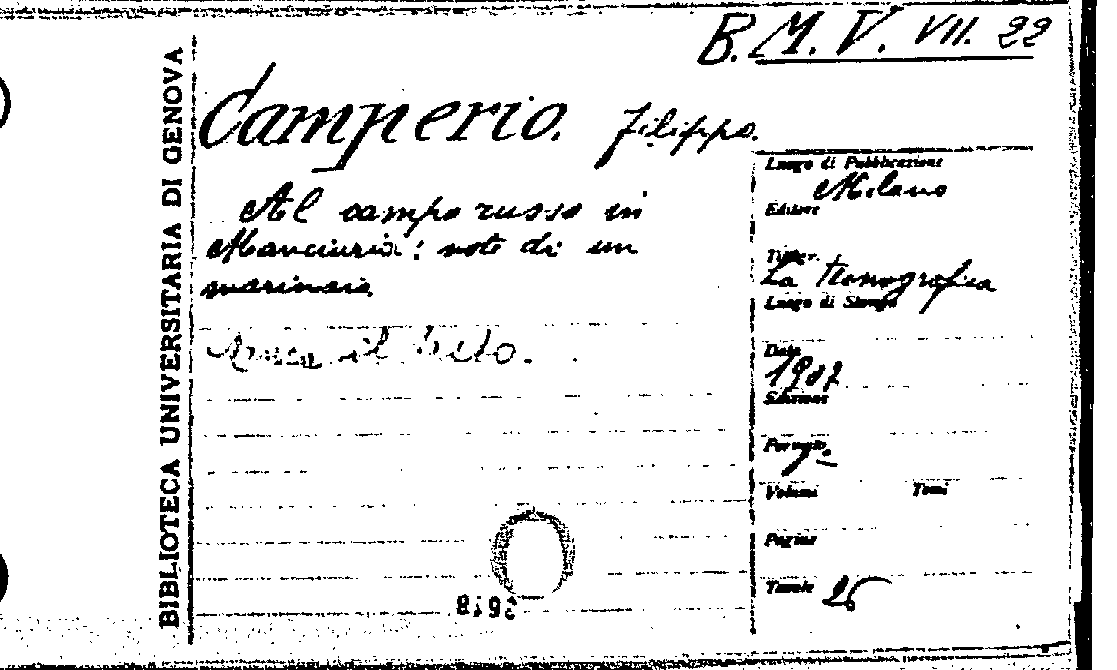 B. M. V. VII. 22
BIBLIOTECA UNIVERSITARIA DI GENOVA
Camperio. Filippo.
Al campo russo in
Manciuria: note di un
marinaio
il
Luogo di Pubblicazione
Milano
Editore
Tipogr.
La
Luogo di Stampa
Data
1907
Edizione
Formato
Volumi Tomi
Pagine
Tavole 25